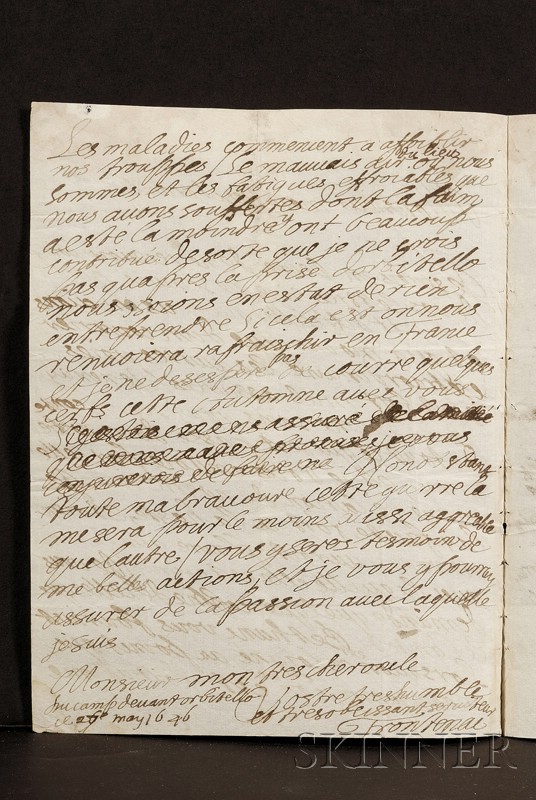 Les maladies commencent a affoiblir
nos trouppes Le mauvais air ou nous
du lieu
sommes, et les fatigues effroiables que
nous avons souffertes dont la faim
a esté la moindre y ont beaucoup
contribué de sorte que je ne crois
pas quapres la prise dorbitello
nous soions en estat de rien
entreprendre Si cela est on nous
renvoiera rafraischir en France
et je ne desespere pas courre quelques
cerfs cette automne avec vous
Nonobstant
toute ma bravoure cette guerre la
me sera pour le moins aussi aggreable
que lautre / vous y seres tesmoin de
me belles actions, et je vous y pourray
assurer de la passion avec laquelle
je suis
Monsieur mon tres cher oncle
du camp devant orbitello
Vostre tres humble
et tres obeissant serviteur
ce may 1646
Frontenac
SKINNER